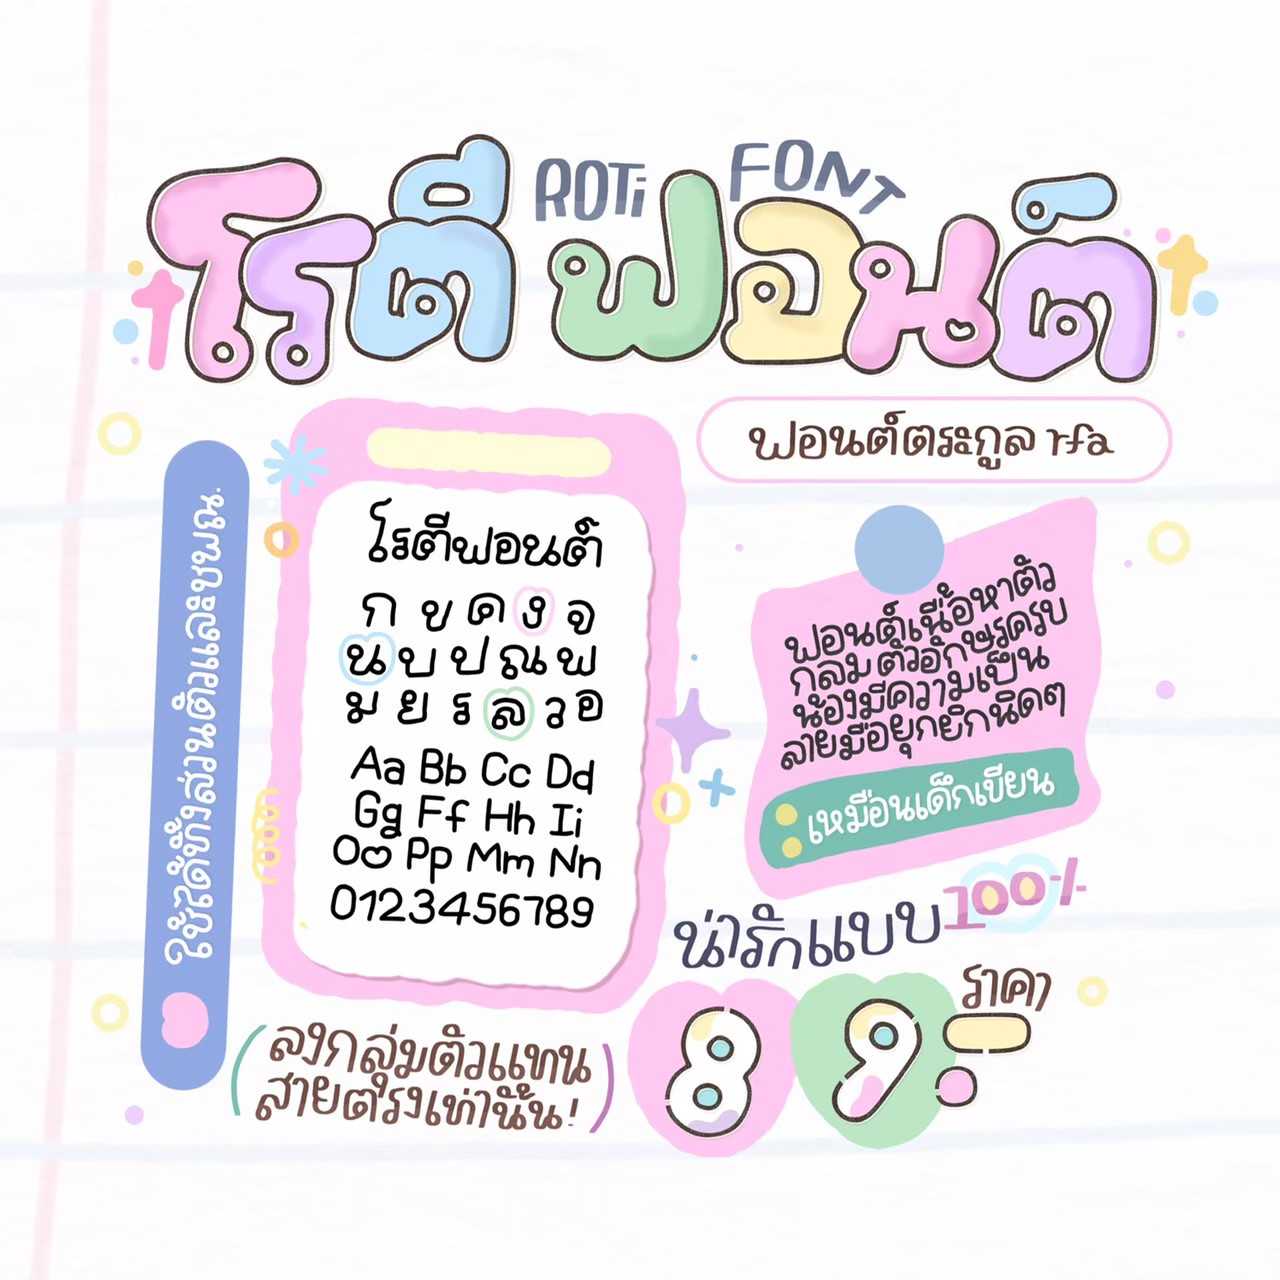 โรตี ฟอนต์
ROTi FONT
ฟอนต์ตระกูล rfa
ใช้ได้ทั้งส่วนตัวและชพณ.
โรตีฟอนต์
ก ข ค ง จ
น บ ป ณ พ
ม ย ร ล ว อ
Aa Bb Cc Dd
Gg Ff Hh Ii
Oo Pp Mm Nn
0123456789
ฟอนต์เนื้อหาตัว
กลม ตัวอักษรครบ
น้องมีความเป็น
ลายมือยุกยิกนิดๆ
เหมือนเด็กเขียน
น่ารักแบบ 100%
ราคา
89.-
(ลงกลุ่มตัวแทน
สายตรงเท่านั้น!)